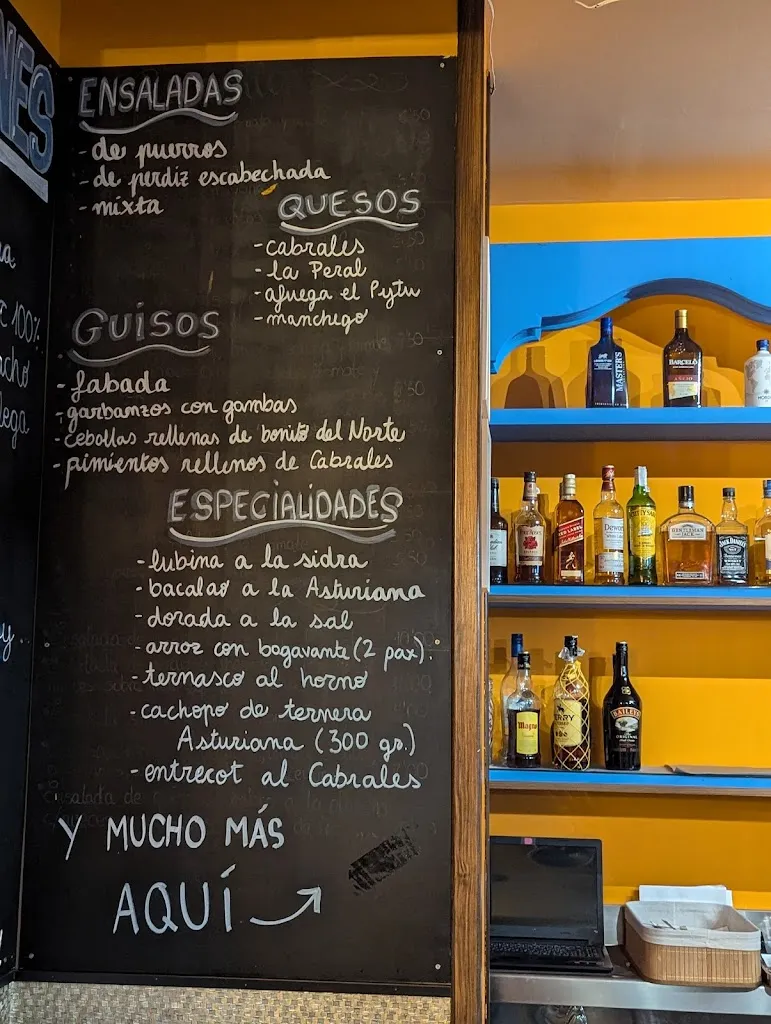 NES
100%
ENSALADAS
- de puerros
- de perdiz escabechada
- mixta
QUESOS
- cabrales
- la Peral
- afuega el Pytu
- manchego
GUISOS
- fabada
- garbanzos con gambas
- cebollas rellenas de bonito del Norte
- pimientos rellenos de Cabrales
ESPECIALIDADES
- lubina a la sidra
- bacalao a la Asturiana
- dorada a la sal
- arroz con bogavante (2 pax).
- ternasco al horno
- cachopo de ternera
Asturiana (300 gr.)
- entrecot al Cabrales
Y MUCHO MÁS
AQUÍ
MASTER'S
BARCELÓ
AÑEJO
RED LABEL
Dewar's
GENTLEMAN
JACK
JACK DANIEL'S
Magno
BAILEYS
ORIGINAL